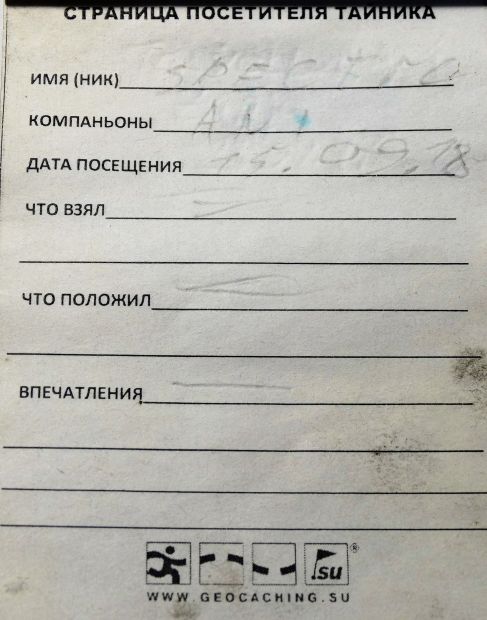 СТРАНИЦА ПОСЕТИТЕЛЯ ТАЙНИКА
ИМЯ (НИК) SPECTrO
КОМПАНЬОНЫ ANI
ДАТА ПОСЕЩЕНИЯ 15.09.18
ЧТО ВЗЯЛ –
ЧТО ПОЛОЖИЛ –
ВПЕЧАТЛЕНИЯ –
.su ®
WWW.GEOCACHING.SU